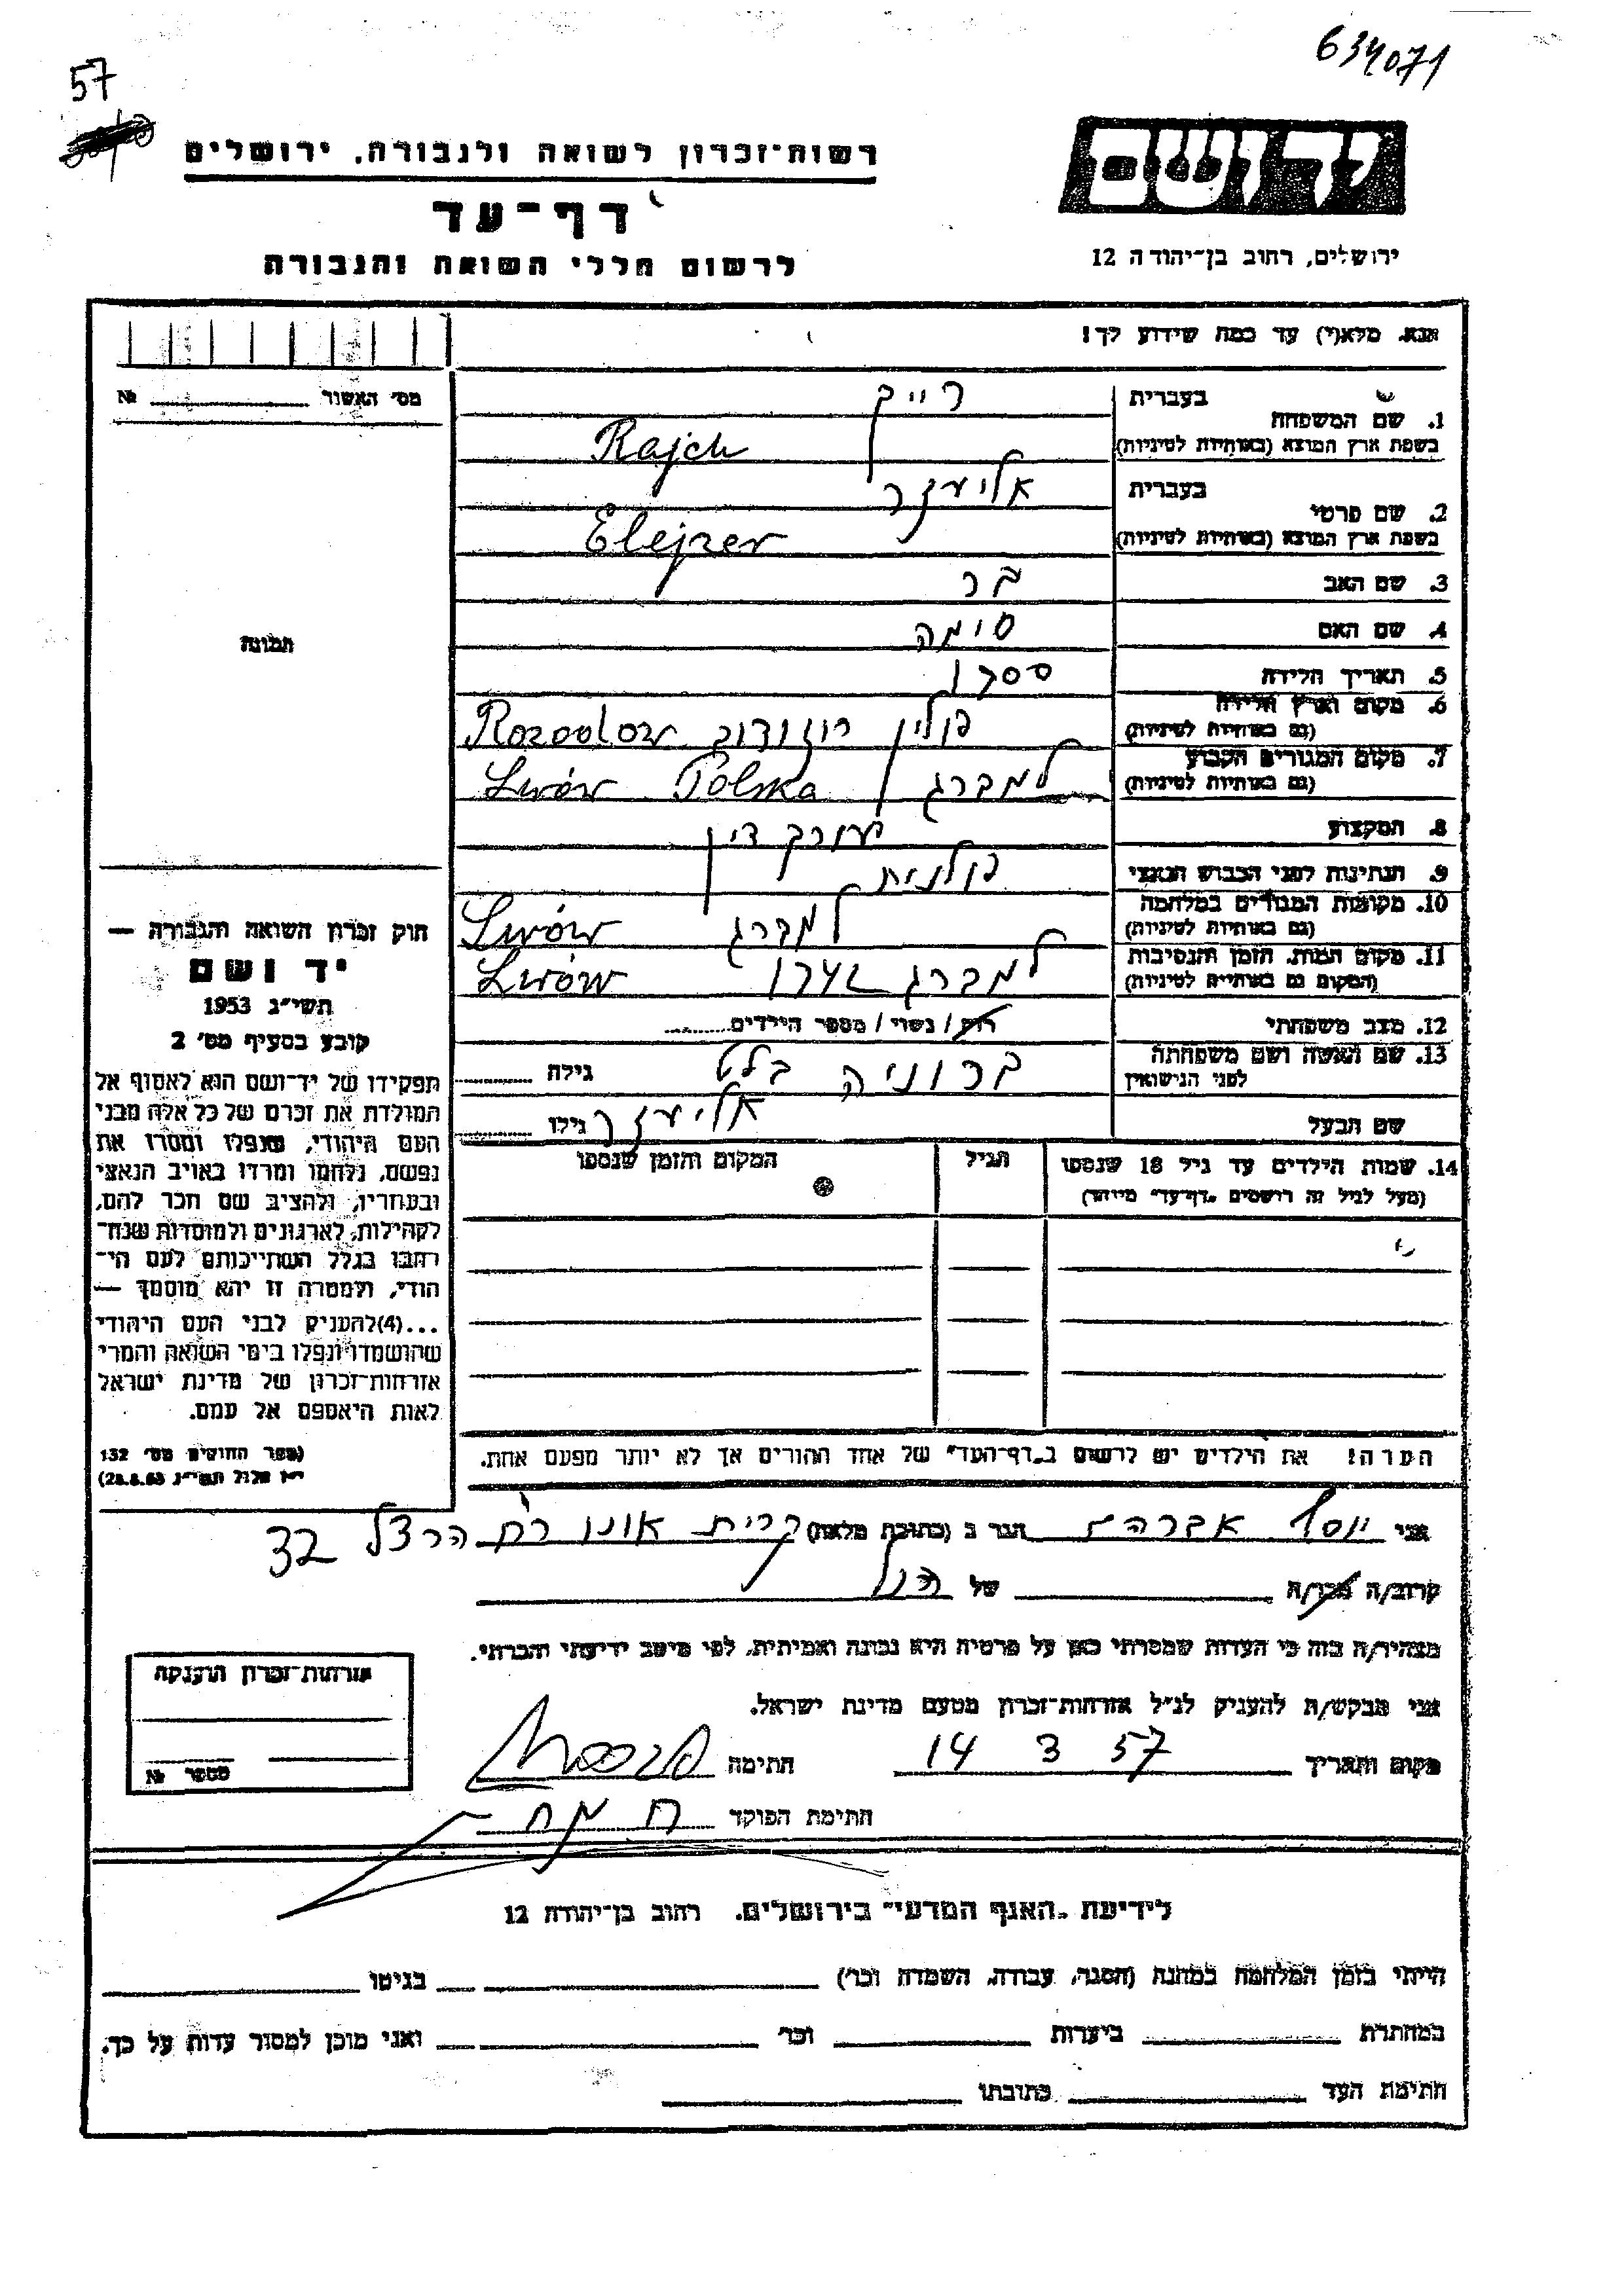 57
634071
יד ושם
רשות־זכרון לשואה ולגבורה, ירושלים
דף־עד
לרשום חללי השואה והגבורה
ירושלים, רחוב בן־יהודה 12
אנא, מלא(י) עד כמה שידוע לך!
מס׳ האשור № 
בעברית רייך
1. שם המשפחה
בשפת ארץ המוצא (באותיות לטיניות) Rajch
בעברית אליעזר
2. שם פרטי
בשפת ארץ המוצא (באותיות לטיניות) Elejzer
3. שם האב בר
4. שם האם סימה
5. תאריך הלידה
6. מקום וארץ הלידה
(גם באותיות לטיניות) פולין רוזודוב Rozvdow
7. מקום המגורים הקבוע
(גם באותיות לטיניות) למברג Polska Lwów
8. המקצוע עורך דין
9. הנתינות לפני הכבוש הנאצי פולנית
10. מקומות המגורים במלחמה
(גם באותיות לטיניות) למברג Lwów
11. מקום המות, הזמן והנסיבות
(המקום גם באותיות לטיניות) למברג Lwów
12. מצב משפחתי רוק / נשוי / מספר הילדים
13. שם האשה ושם משפחתה
לפני הנישואין ברוניה בלט גילה
שם הבעל אליעזר גילו
14. שמות הילדים עד גיל 18 שנספו הגיל המקום והזמן שנספו
(מעל לגיל זה רושמים „דף־עד״ מיוחד)
הערה! את הילדים יש לרשום ב„דף־העד״ של אחד ההורים אך לא יותר מפעם אחת.
תמונה
חוק זכרון השואה והגבורה —
יד ושם
תשי״ג 1953
קובע בסעיף מס׳ 2
תפקידו של יד־ושם הוא לאסוף אל
המולדת את זכרם של כל אלה מבני
העם היהודי, שנפלו ומסרו את
נפשם, נלחמו ומרדו באויב הנאצי
ובעוזריו, ולהציב שם וזכר להם,
לקהילות, לארגונים ולמוסדות שנח־
רבו בגלל השתייכותם לעם הי־
הודי, ולמטרה זו יהא מוסמך —
...(4)להעניק לבני העם היהודי
שהושמדו ונפלו בימי השואה והמרי
אזרחות־זכרון של מדינת ישראל
לאות היאספם אל עמם.
(ספר החוקים מס׳ 132
י״ז אלול תשי״ג 28.8.53)
אני יוסף אברהם הגר ב (כתובת מלאה) קרית אונו רח הרצל 32
קרוב/ה מכר/ה של הנ״ל
מצהיר/ה בזה כי העדות שמסרתי כאן על פרטיה היא נכונה ואמיתית, לפי מיטב ידיעתי והכרתי.
אני מבקש/ת להעניק לנ״ל אזרחות־זכרון מטעם מדינת ישראל.
מקום ותאריך 14 3 57 חתימה
חתימת הפוקד
אזרחות־זכרון הוענקה
מספר №
לידיעת „האגף המדעי״ בירושלים, רחוב בן־יהודה 12
הייתי בזמן המלחמה במחנה (הסגר, עבודה, השמדה וכו׳) בגיטו
במחתרת ביערות וכו׳ ואני מוכן למסור עדות על כך.
חתימת העד כתובתו